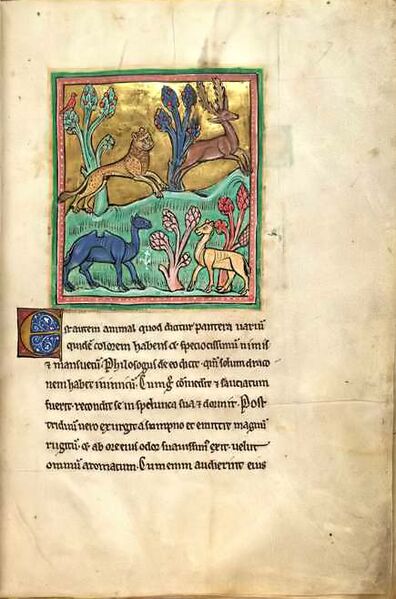 Est autem animal quod dicitur pantera variu
quidē colorem habens & speciosissimū nimis
& mansuetū. Philosogus de eo dicit qm̄ solum draco
nem habet inimicū. Cumq; comederit & sauciatum
fuerit recondit se in spelunca sua & dormit. Post
triduum vero exurgit a sompno et emittit magnū
rugitū. & ab ore eius odor suavissimꝰ exit velut
omnium aromatum. Cum enim audierint eius